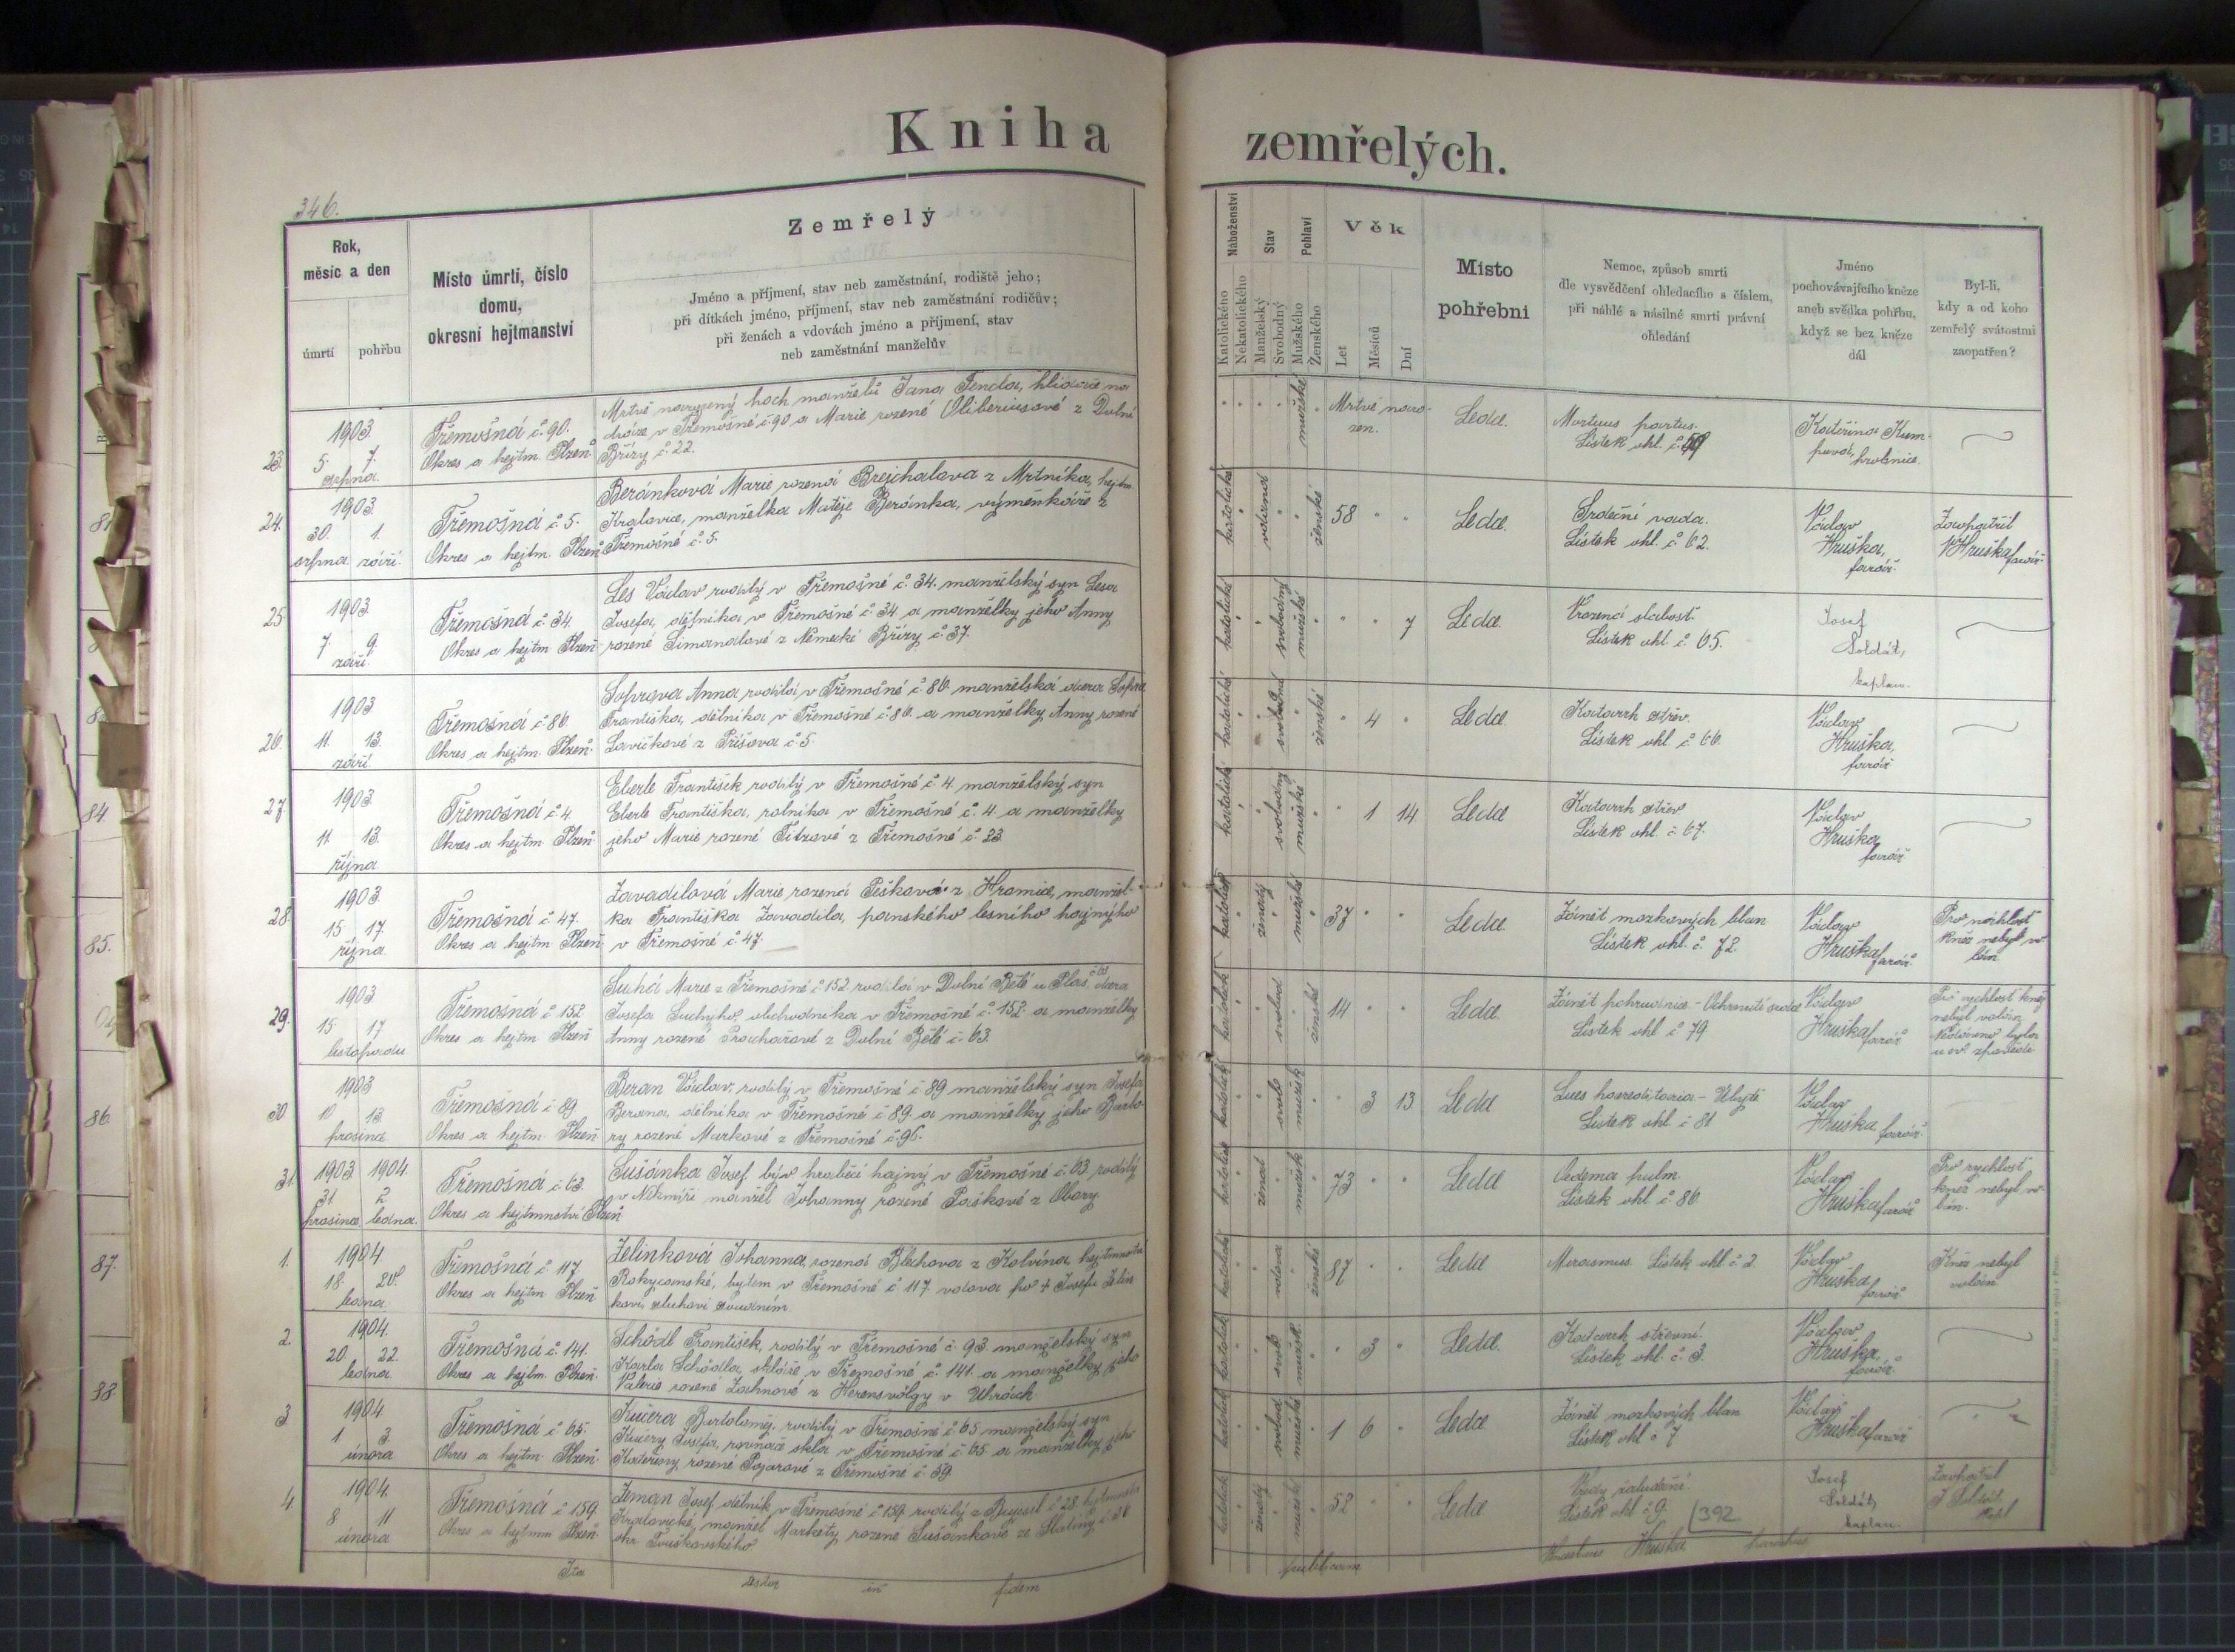 Kniha zemřelých.
346.
Rok,
měsíc a den
úmrtí
pohřbu
Místo úmrtí, číslo
domu,
okresní hejtmanství
Zemřelý
Jméno a příjmení, stav neb zaměstnání, rodiště jeho;
při dítkách jméno, příjmení, stav neb zaměstnání rodičův;
při ženách a vdovách jméno a příjmení, stav
neb zaměstnání manželův
Náboženství
Katolického
Nekatolického
Stav
Manželský
Svobodný
Pohlaví
Mužského
Ženského
Věk
Let
Měsíců
Dní
Místo
pohřební
Nemoc, způsob smrti
dle vysvědčení ohledacího s číslem,
při náhlé a násilné smrti právní
ohledání
Jméno
pochovávajícího kněze
aneb svědka pohřbu,
když se bez kněze
dál
Byl-li,
kdy a od koho
zemřelý svátostmi
zaopatřen?
23.
1903
5. 7.
srpna
Třemošná č. 90.
Okres a hejtm. Plzeň
Mrtvě narozený hoch manželů Jana Tenda, hlídače na
dráze v Třemošné č. 90 a Marie rozené Oliberiusové z Dolní
Břízy č. 22.
mužské
Mrtvě naro-
zen.
Ledce.
Mortuus partus.
Lístek ohl. č.
Kateřina Kum-
pová, hrobnice.
24.
1903
30. 1.
srpna září.
Třemošná č. 5.
Okres a hejtm. Plzeň
Beránková Marie rozená Brejchalova z Mrtníka, hejtm.
Kralovice, manželka Matěje Beránka, výměnkáře z
Třemošné č. 5.
katolické
vdaná
ženské
58
Ledce.
Srdeční vada.
Lístek ohl. č. 62.
Václav
Hruška,
farář.
Zaopatřil
V Hruška farář.
25.
1903
7. 9.
září.
Třemošná č. 34.
Okres a hejtm Plzeň
Les Václav rodilý v Třemošné č. 34. manželský syn Lesa
Josefa, dělníka v Třemošné č. 34 a manželky jeho Anny
rozené Šimandlové z Německé Břízy č. 37.
katolické
svobodný
mužské
7
Ledce.
Vrozená slabost.
Lístek ohl. č. 65.
Josef
Soldát,
kaplan.
26.
1903
11. 13.
září.
Třemošná č. 86.
Okres a hejtm. Plzeň.
Soprova Anna rodilá v Třemošné č. 86. manželská dcera Sopra
Františka, dělníka v Třemošné č. 86. a manželky Anny rozené
Lavičkové z Příšova č. 5.
katolické
svobodná
ženské
4
Ledce.
Katarrh střev.
Lístek ohl. č. 66.
Václav
Hruška,
farář
27
1903
11. 13.
října
Třemošná č. 4
Okres a hejtm Plzeň
Eberle František rodilý v Třemošné č. 4. manželský syn
Eberle Františka, rolníka v Třemošné č. 4. a manželky
jeho Marie rozené Fitzové z Třemošné č. 33
katolické
svobodný
mužské
1 14
Ledce
Katarrh střev
Lístek ohl. č. 67.
Václav
Hruška
farář
28.
1903.
15. 17.
října
Třemošná č. 47.
Okres a hejtm Plzeň
Zavadilová Marie rozená Pešková z Hromice, manžel-
ka Františka Zavadila, panského lesního hajného
v Třemošné č. 47.
ženatý
mužské
37
Ledce.
Zánět mozkových blan
Lístek ohl. č. 72.
Václav
Hruška farář.
Pro náhlost
kněz nebyl vo-
lán
29.
1903
15. 17
listopadu
Třemošná č. 152.
Okres a hejtm Plzeň
Suchá Marie z Třemošné č. 152 rodilá v Dolní Bělé u Plas, č. 63. dcera
Josefa Suchýho, obchodníka v Třemošné č. 152. a manželky
Anny rozené Prochařové z Dolní Bělé č. 63.
svobod
ženské
14
Ledce.
Zánět pohrudnice - Ochrnutí srdce
Lístek ohl č. 79
Václav
Hruška farář
Pro rychlost kněz
nebyl volán
Nedávno byla
u sv. zpovědi
30
1903
10 13.
prosince
Třemošná č 89.
Okres a hejtm. Plzeň
Beran Václav, rodilý v Třemošné č 89 manželský syn Josefa
Berana, dělníka v Třemošné č 89. a manželky jeho Barbo-
ry rozené Markové z Třemošné č. 96.
svob
mužsk
3 13
Ledce
Lues haereditaria - Úbytě
Lístek ohl č 81
Václav
Hruška farář.
31.
1903 1904.
31. 2.
prosince ledna.
Třemošná č. 63.
Okres a hejtmnství Plzeň
Sušánka Josef býv. hraběcí hajný v Třemošné č. 63. rodilý
v Nekmíře manžel Johanny rozené Paškové z Obory.
ženat
mužsk
73
Ledce
Oedema pulm.
Lístek ohl č. 86.
Václav
Hruška farář
Pro rychlost
kněz nebyl vo-
lán.
1.
1904.
18. 20.
ledna
Třemošná č. 117
Okres a hejtm. Plzeň
Zelinková Johanna, rozená Blechova z Kolvína, hejtmanství
Rokycanské, bytem v Třemošné č 117. vdova po + Josefu Zelin
kovi, sluhovi soudním.
vdova
ženské
87
Ledce
Marasmus. Lístek ohl č 2
Václav
Hruška
farář
Kněz nebyl
volán
2.
1904.
20. 22.
ledna
Třemošná č. 141.
Okres a hejtm. Plzeň.
Schödl František, rodilý v Třemošné č. 93. manželský syn
Karla Schödla, skláře v Třemošné č. 141. a manželky jeho
Valerie rozené Zachnové z Herensvölgy v Uhrách
svob
mužsk.
3
Ledce.
Katarrh střevní.
Lístek ohl. č. 3.
Václav
Hruška,
farář.
3.
1904
1 3.
února
Třemošná č 65.
Okres a hejtm. Plzeň.
Kučera Bartoloměj, rodilý v Třemošné č 65 manželský syn
Kučery Josefa, rovnače skla v Třemošné č. 65 a manželky jeho
Kateřiny rozené Pojarové z Třemošné č. 59
svobod
mužské
1 6
Ledce
Zánět mozkových blan
Lístek ohl č 7
Václav
Hruška farář
4
1904.
8 11
února
Třemošná č 159.
Okres a hejtmn Plzeň
Zeman Josef dělník v Třemošné č 159 rodilý z č 28. hejtmanství
Kralovické, manžel Markety rozené Sušánkové ze
okr.
ženatý
mužsk
52
Ledce
Vředy žaludeční
Lístek ohl č 9.
392
Josef
Soldát,
kaplan.
Zaopatřil
J Soldát
kapl
Ita testor in fidem publicam Hruška parochus
81
84
85.
86.
87.
88.